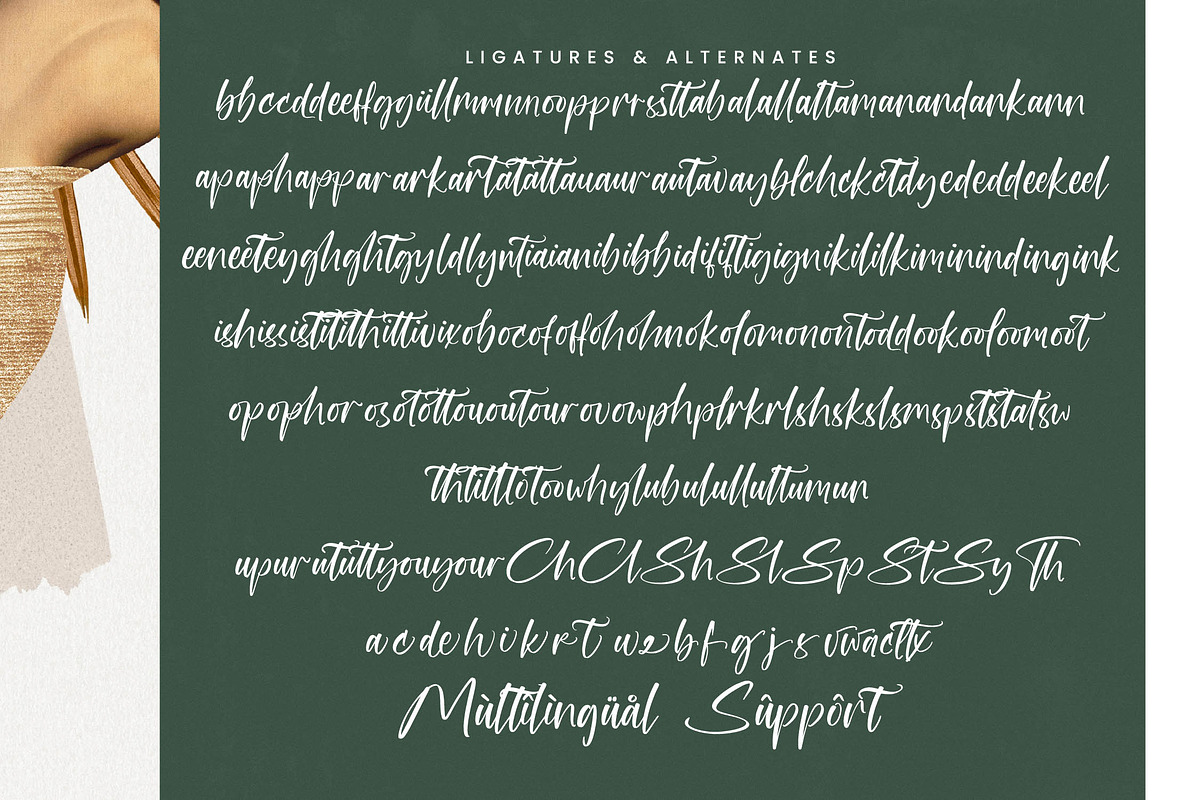 LIGATURES & ALTERNATES
bbccddeeffggiillmmnnoopprrssttabalallattamanandankann
apaphapparararkartatattauaurautavayblchckctdyededdeekeel
eeneeteyghghtgyldlyntiaianibibbidififtigignikililkiminindingink
ishississtitithittivixobocofoffohohnokolomonontoddookooloomoot
opophorosotottououtourovowphplrkrlshskslsmspststatsw
thtitttotoowhylubulullultumun
upurututtyouyourChClShSlSpStSyTh
Mùltîlìngüål Sûppôrt